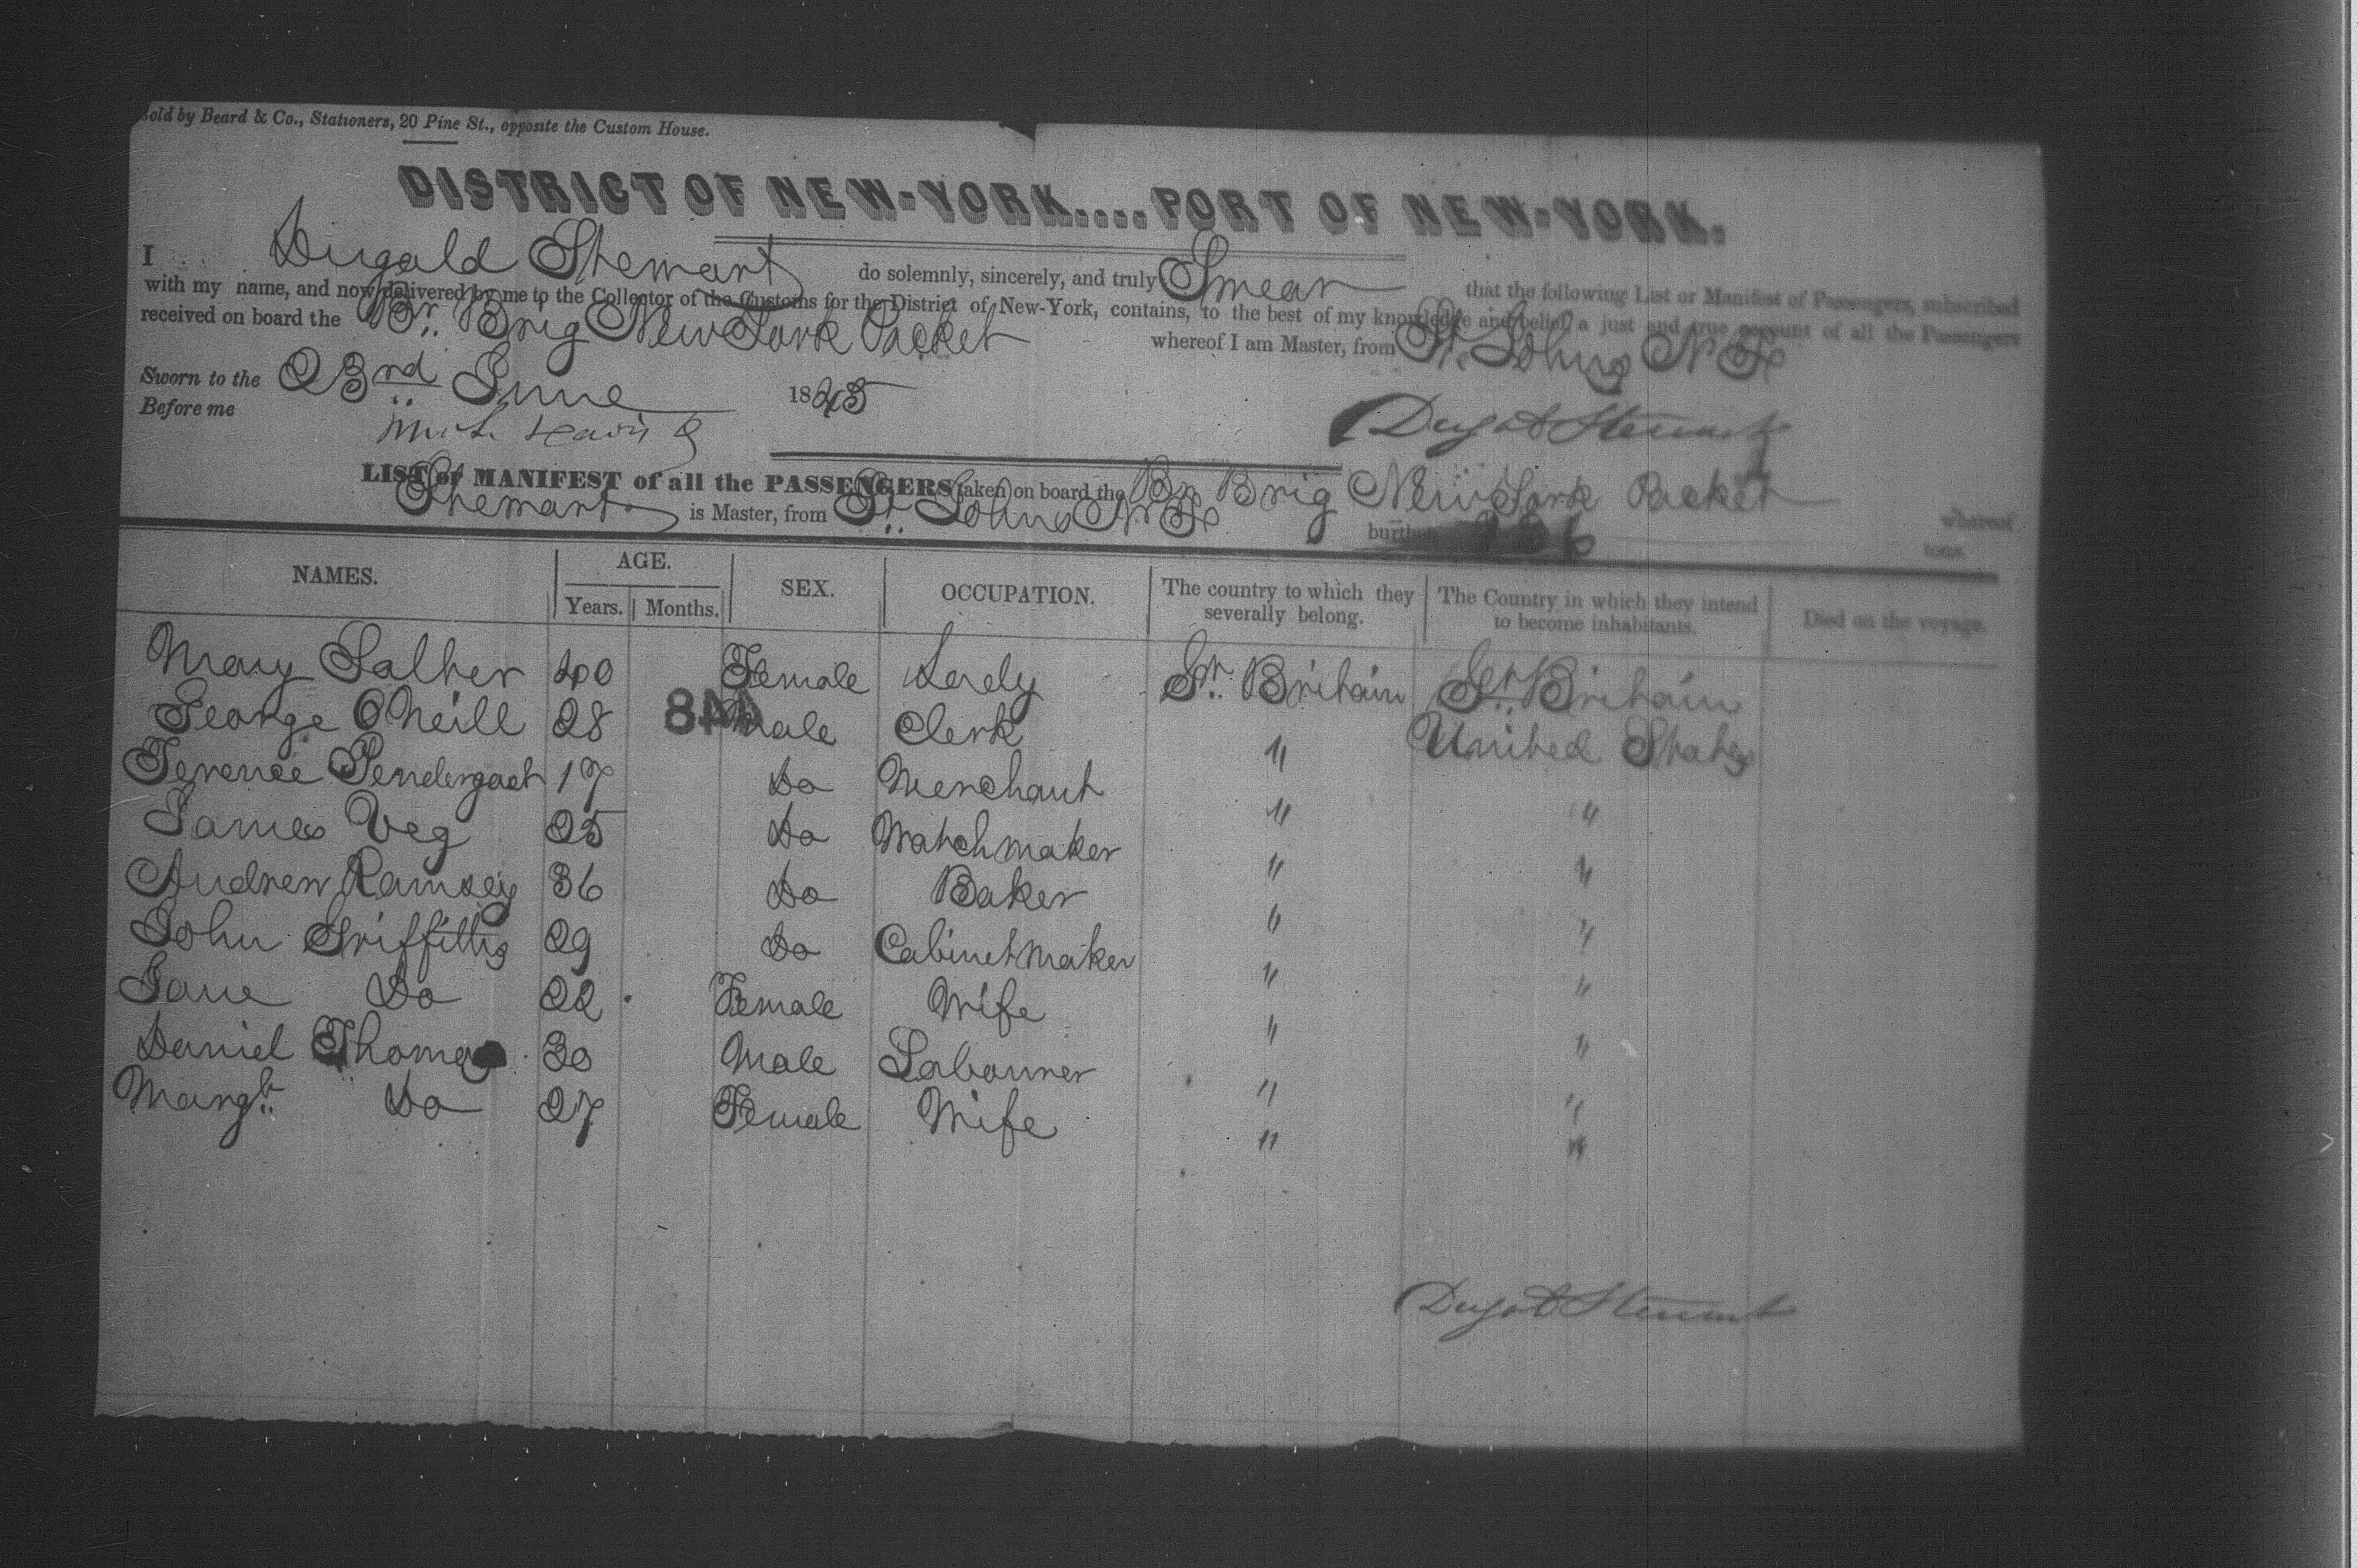 Sold by Beard & Co., Stationers, 20 Pine St., opposite the Custom House.
DISTRICT OF NEW-YORK....PORT OF NEW-YORK.
I Dugald Stewart do solemnly, sincerely, and truly Swear that the following List or Manifest of Passengers, subscribed
with my name, and now delivered by me to the Collector of the Customs for the District of New-York, contains, to the best of my knowledge and belief, a just and true account of all the Passengers
received on board the Br. Brig New York Packet whereof I am Master, from St. Johns N F
Sworn to the 23rd June 1845
Before me
Dugald Stewart
LIST or MANIFEST of all the PASSENGERS taken on board the Br Brig New York Packet whereof
Stewart is Master, from St. Johns N F burthen tons.
NAMES. AGE. Years. Months. SEX. OCCUPATION. The country to which they severally belong. The Country in which they intend to become inhabitants. Died on the voyage.
Mary Salter 40 Female Lady Gt. Britain Gt. Britain
George ONeill 28 Male Clerk " United States
Terence Pendergast 17 Do Merchant " "
James Veg 25 Do Watchmaker " "
Andrew Ramsey 36 Do Baker " "
John Griffitts 29 Do Cabinet Maker " "
Jane Do 22 Female Wife " "
Daniel Thomas 30 Male Labourer " "
Margt. Do 27 Female Wife " "
Dugald Stewart